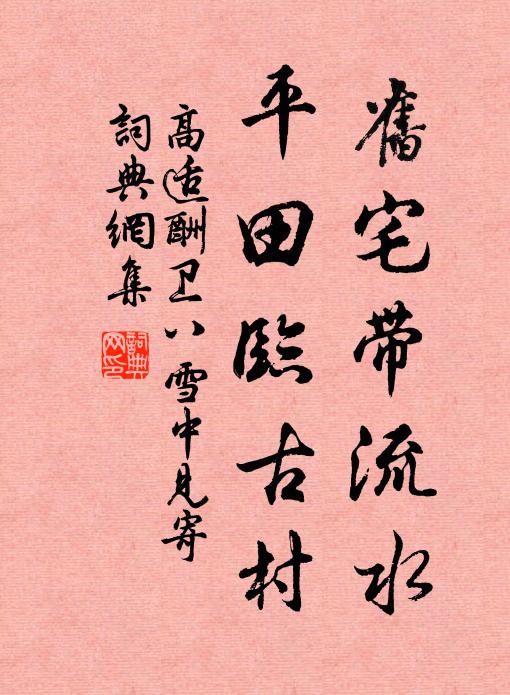 舊宅帶流水
平田臨古村
高适酬卫八雪中見寄
詞典網集
詞典
网印